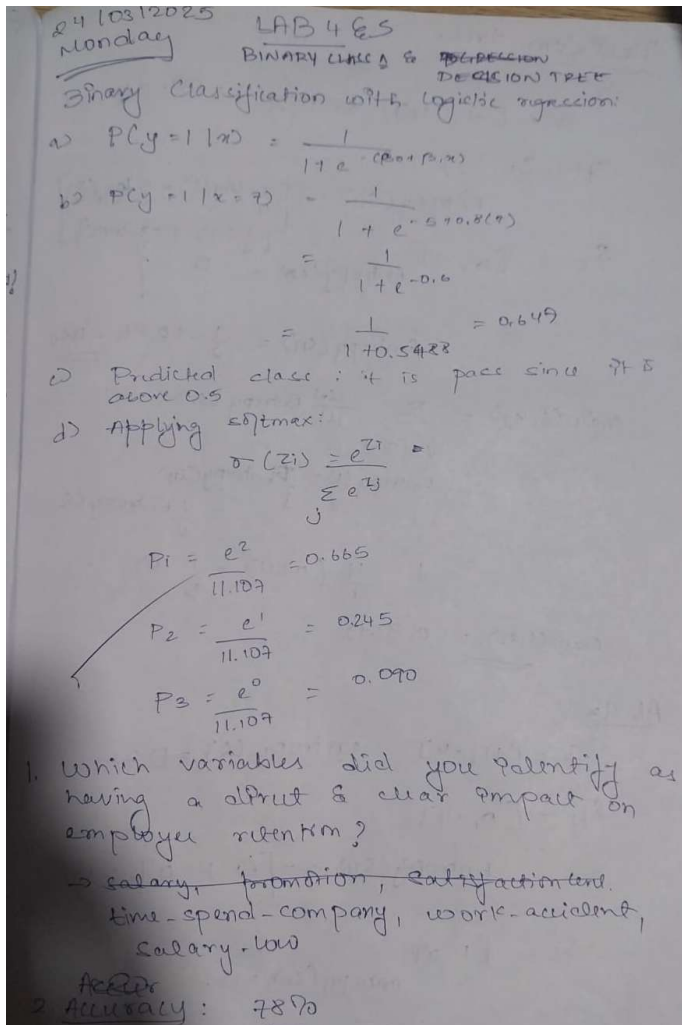 24/03/2025
Monday
LAB 4 & 5
BINARY CLASS & REGRESSION
DECISION TREE
Binary Classification with logictic rigression:
a) P(y=1|x) = 1 / 1+e^-(β0+β1x)
b) P(y=1|x=7) = 1 / 1+e^-5+0.8(7)
= 1 / 1+e^-0.6
= 1 / 1+0.5488 = 0.649
c) Predicted class : it is pass since it is
above 0.5
d) Applying softmax:
σ(Zi) = e^Zi / Σj e^Zj
P1 = e^2 / 11.107 = 0.665
P2 = e^1 / 11.107 = 0.245
P3 = e^0 / 11.107 = 0.090
1. Which variables did you identify as
having a dirut & clear impact on
employee retention?
→ salary, promotion, satisfaction level.
time-spend-company, work-accident,
salary-low
2. Accuracy : 78%